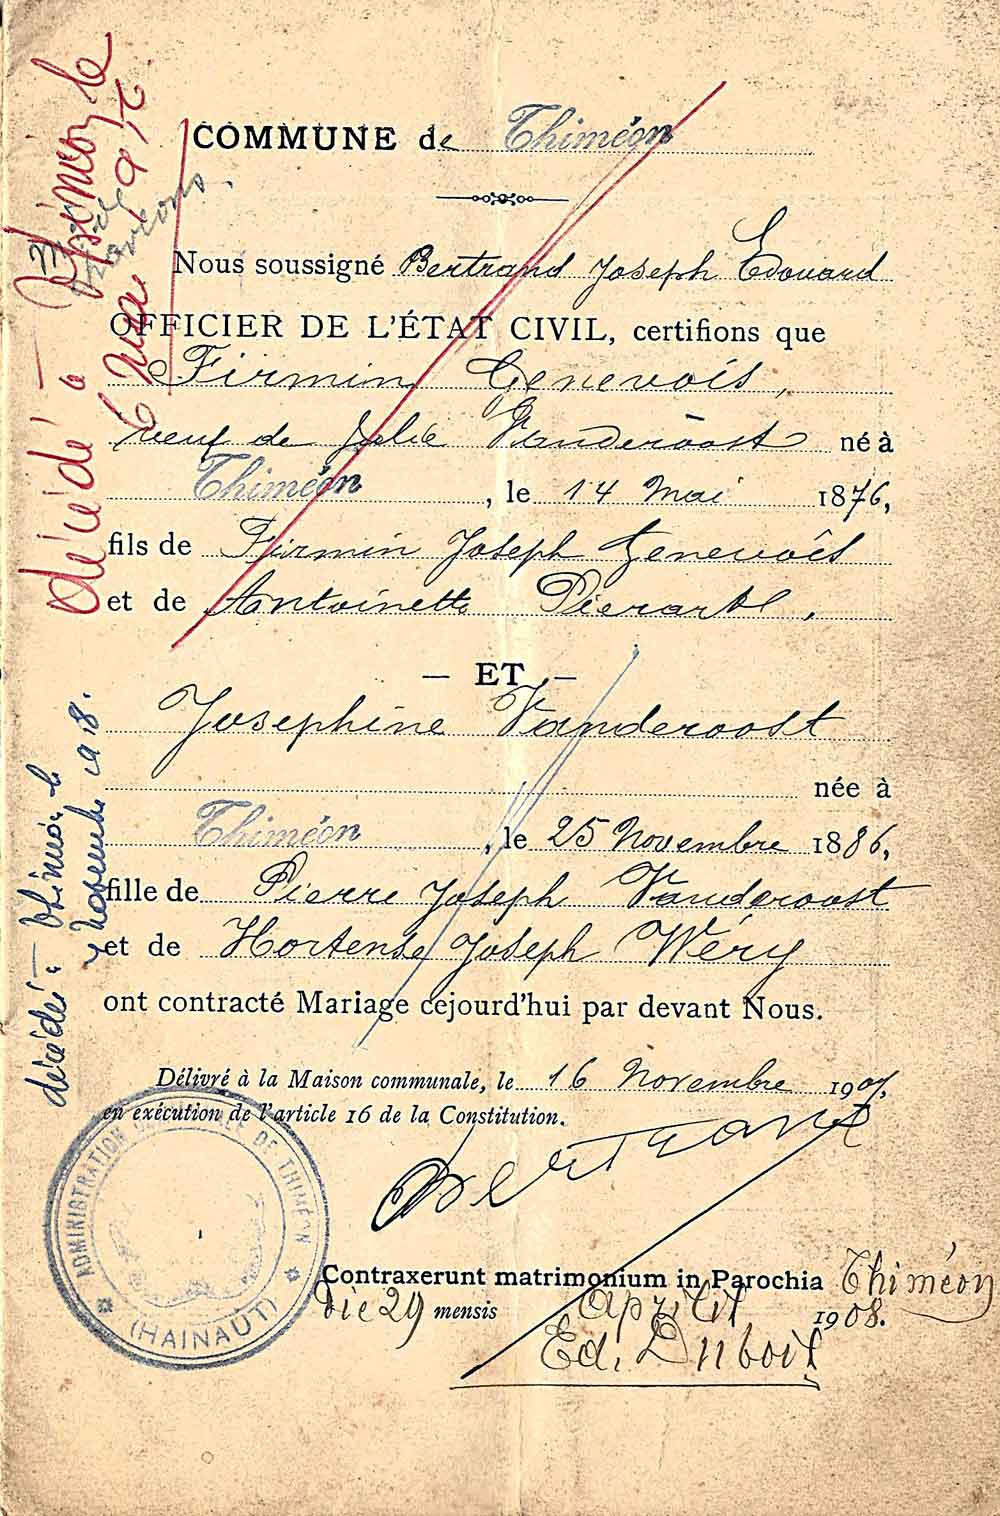 COMMUNE de Thiméon
Nous soussigné Bertrand Joseph Edouard
OFFICIER DE L'ÉTAT CIVIL, certifions que
Firmin Genevois,
veuf de Julie Vanderoost né à
Thiméon, le 14 Mai 1876,
fils de Firmin Joseph Genevois
et de Antoinette Pierard,
— ET —
Josephine Vanderoost
née à
Thiméon, le 25 Novembre 1886,
fille de Pierre Joseph Vanderoost
et de Hortense Joseph Wéry
ont contracté Mariage cejourd'hui par devant Nous.
Délivré à la Maison communale, le 16 Novembre 1907,
en exécution de l'article 16 de la Constitution.
Bertrand
ADMINISTRATION COMMUNALE DE THIMÉON
(HAINAUT)
Contraxerunt matrimonium in Parochia Thiméon
die 29 mensis Aprilis 1908.
Ed. Dubois
décédé à Thiméon le
6 mai
décédé à Thiméon le
Novembre 1918.